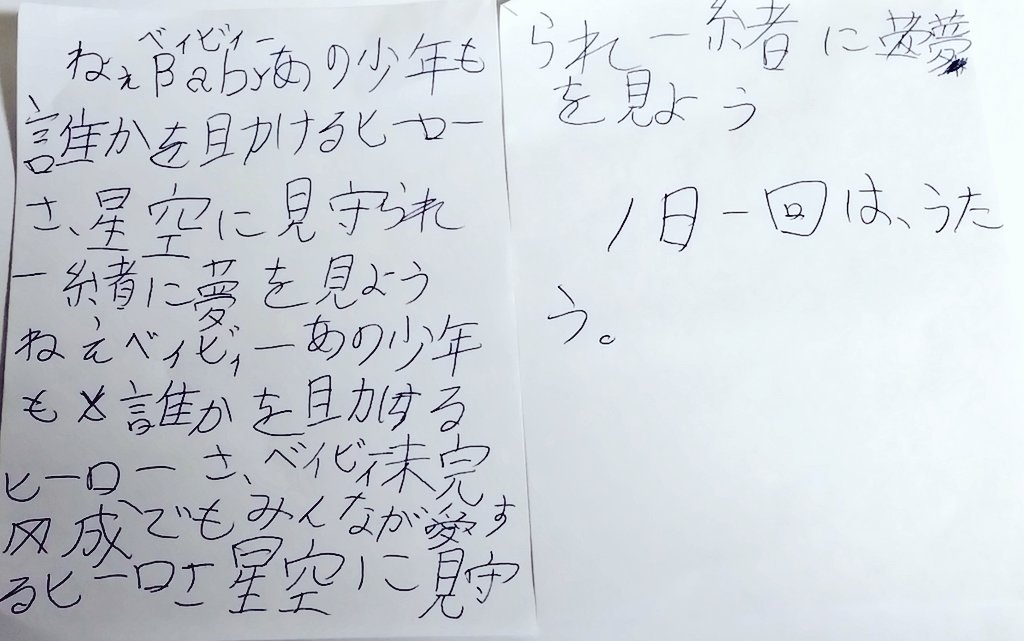 ベイビィー
ねぇBabyあの少年も
誰かを助けるヒーロー
さ、星空に見守られ
一緒に夢を見よう
ねえベイビィーあの少年
も誰かを助する
ヒーローさ、ベイビィ未完
成でもみんなが愛す
るヒーローさ星空に見守
られ一緒に夢
を見よう
1日一回は、うた
う。